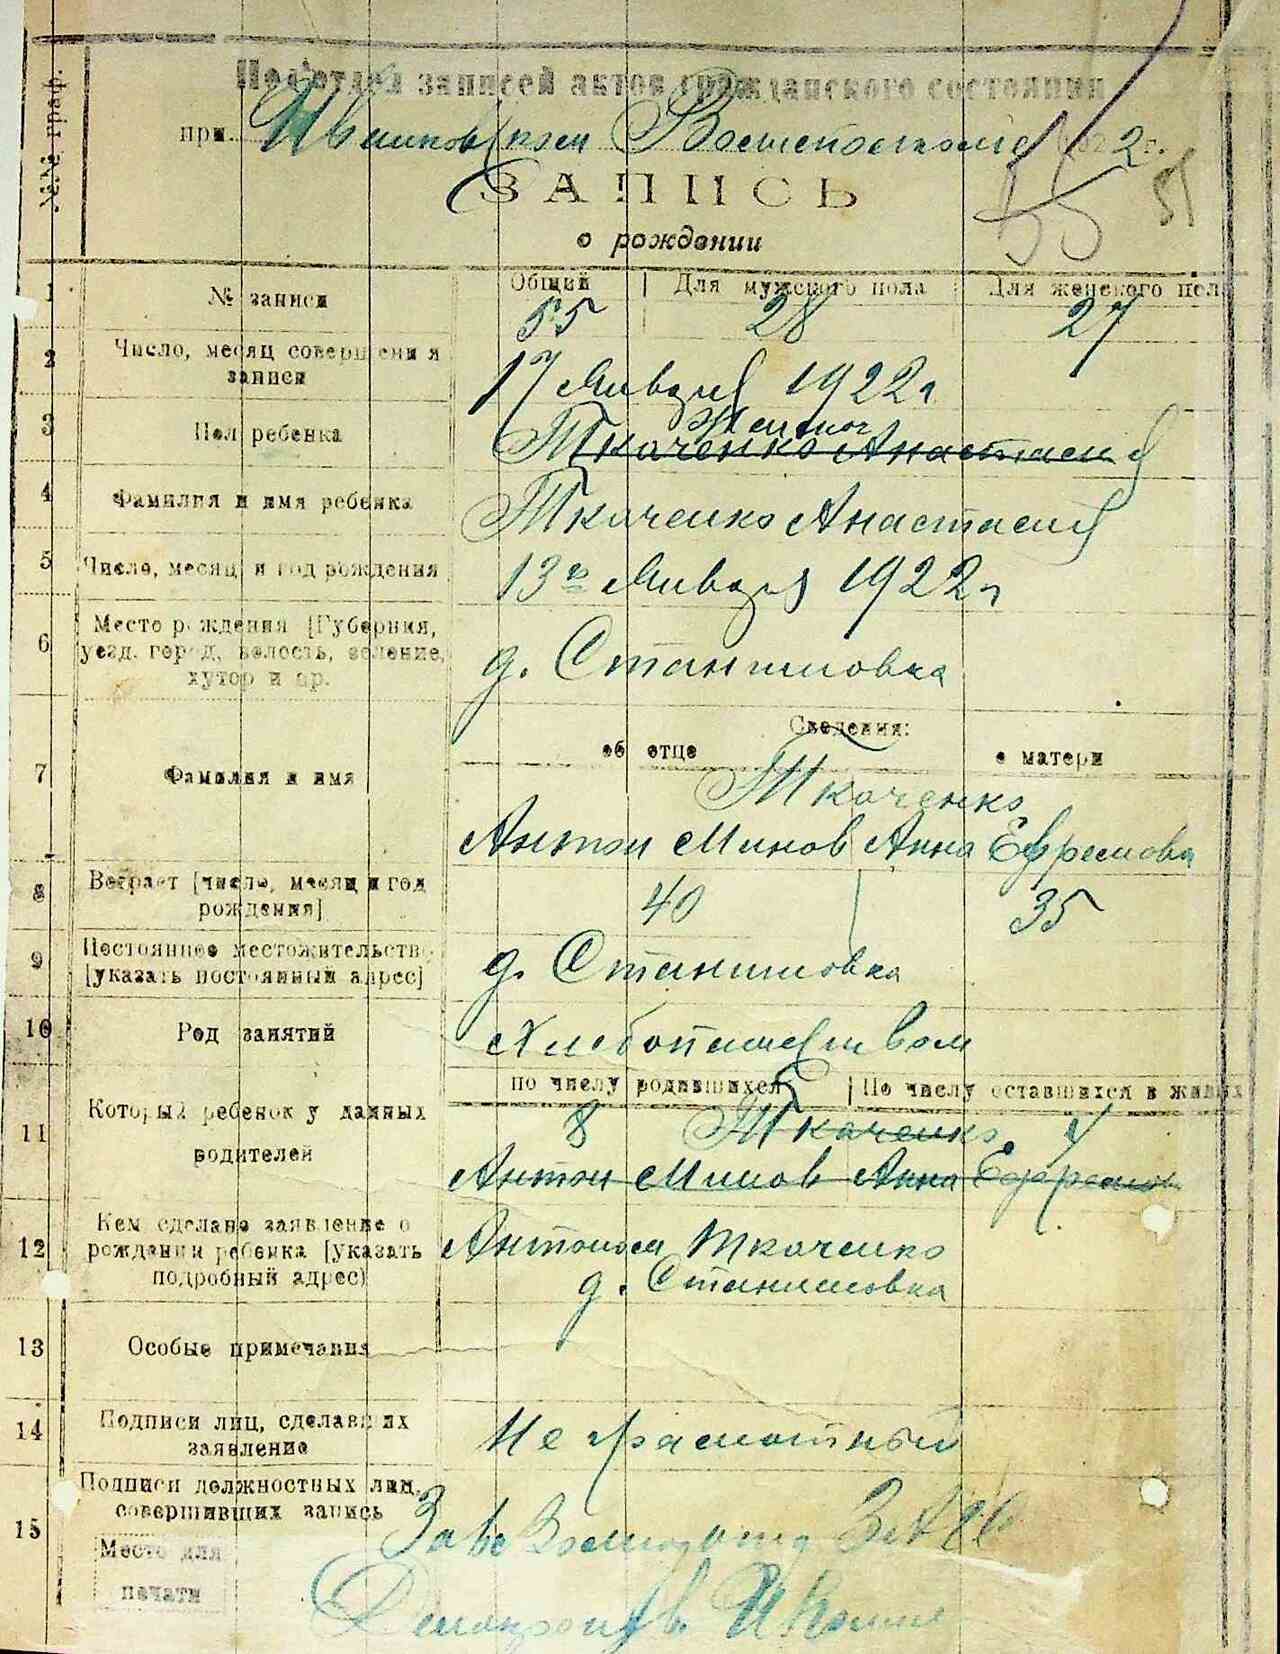 №№ граф.
Под'отдел записей актов гражданского состояния
при 1922 г.
ЗАПИСЬ
55 55
о рождении
1 № записи Общий Для мужского пола Для женского пол
55 28 27
2 Число, месяц совершения записи
17 Января 1922 г
3 Пол ребенка Женског
Ткаченко Анастасия
4 Фамилия и имя ребенка Ткаченко Анастасия
5 Число, месяц и год рождения 13го Января 1922 г
6 Место рождения [Губерния,
уезд, город, волость, селение,
хутор и др.
д. Станишовка
Сведения:
об отце о матери
7 Фамилия и имя Ткаченко
Антон Минов Анна Ефремова
8 Возраст [число, месяц и год
рождения]
40 35
9 Постоянное местожительство
[указать постоянный адрес]
д. Станишовка
10 Род занятий Хлебопашеством
по числу родившихся По числу оставшихся в живых
11 Который ребенок у данных
родителей
8 Ткаченко 4
Антон Минов Анна Ефремов
12 Кем сделано заявление о
рождении ребенка [указать
подробный адрес)
Антоном Ткаченко
д. Станишовка
13 Особые примечания
14 Подписи лиц, сделавших
заявление
Не грамотный
15 Подписи должностных лиц,
совершивших запись
Место для
печати